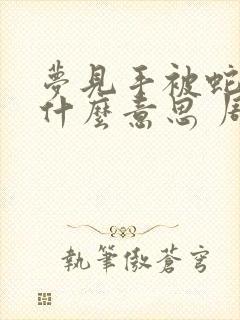 夢見手被蛇
什麼意思 周
執筆傲蒼穹